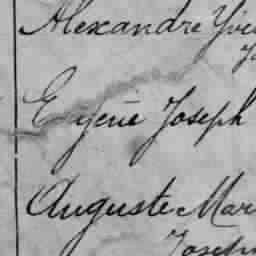 Alexandre Yve
Eugène Joseph
Auguste Mar
Joseph